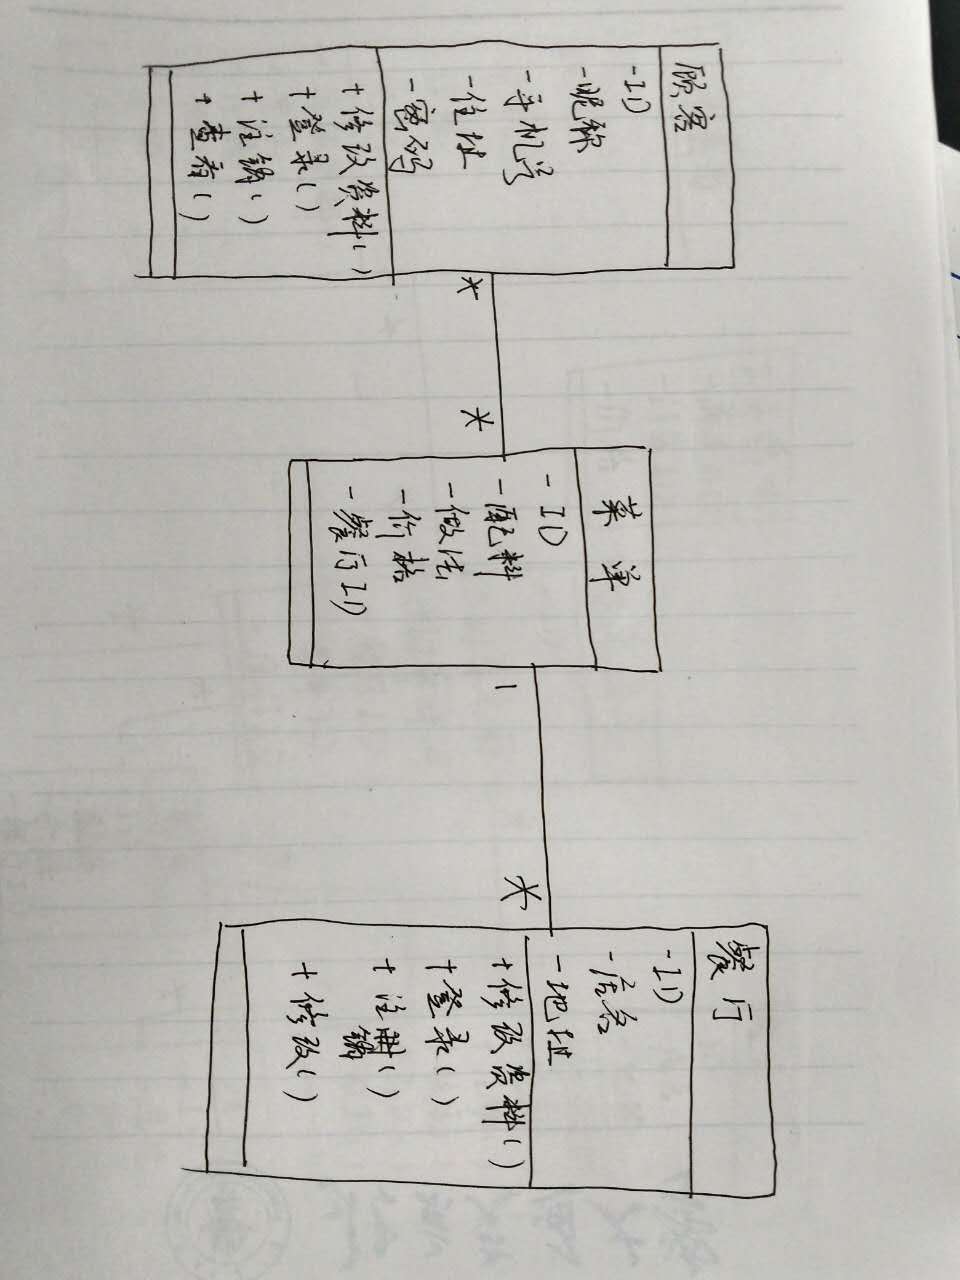 顾客
-ID
-昵称
-手机号
-住址
-密码
+修改资料()
+登录()
+注销()
+查看()
*
*
菜单
-ID
-配料
-做法
-价格
-餐厅ID
1
*
餐厅
-ID
-店名
-地址
+修改资料()
+登录()
+注册()
销
+修改()